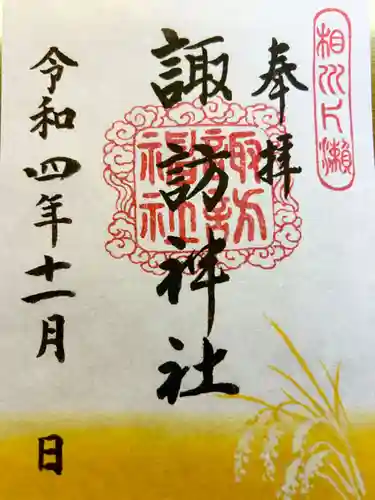 相州片瀨
奉拝
諏訪神社
諏訪
神社
令和四年十一月 日